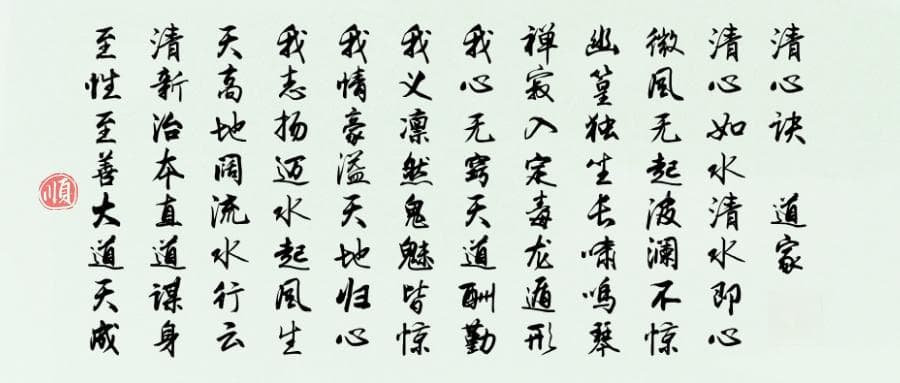 清心诀 道家
清心如水清水即心
微风无起波澜不惊
幽篁独坐长啸鸣琴
禅寂入定毒龙遁形
我心无窍天道酬勤
我义凛然鬼魅皆惊
我情豪溢天地归心
我志扬迈水起风生
天高地阔流水行云
清新治本直道谋身
至性至善大道天成
順